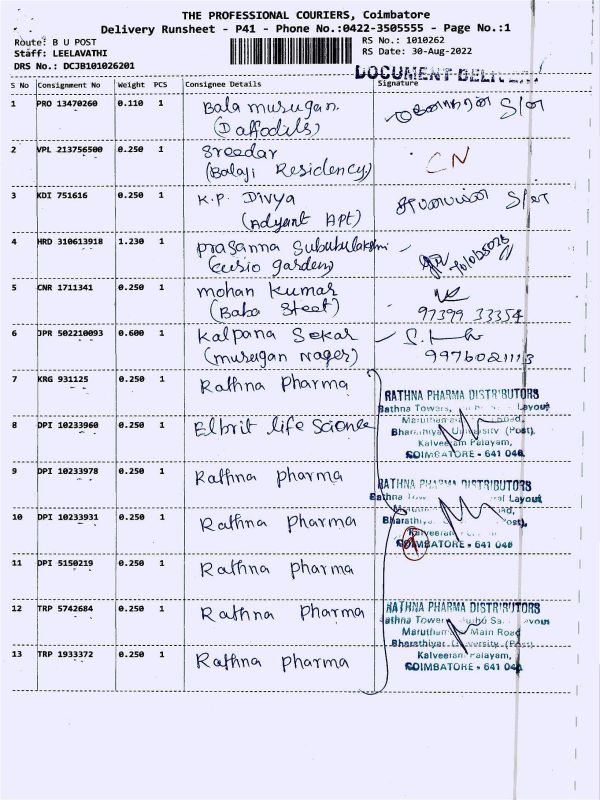 THE PROFESSIONAL COURIERS, Coimbatore
Delivery Runsheet - P41 - Phone No.:0422-3505555 - Page No.:1
Route: B U POST
RS No.: 1010262
Staff: LEELAVATHI
RS Date: 30-Aug-2022
DRS No.: DCJB101026201
DOCUMENT DELIVERY
S No Consignment No Weight PCS Consignee Details Signature
1 PRO 13470260 0.110 1 Bala murugan.
(Daffodils)
2 VPL 213756500 0.250 1 Sreedar CN
(Balaji Residency)
3 KDI 751616 0.250 1 K.P. Divya
(Adyant Apt)
4 HRD 310613918 1.230 1 prasanna Sububulakshmi
(Cusio garden)
5 CNR 1711341 0.250 1 mohan kumar
(Baba Steet) 97399 33354
6 JPR 502210093 0.600 1 Kalpana Sekar
(murugan nager) 9976021113
7 KRG 931125 0.250 1 Rathna Pharma
RATHNA PHARMA DISTRIBUTORS
Rathna Towers, Layout
8 DPI 10233960 0.250 1 Elbrit life Science
Maruthamalai Road,
Bharathiyar University (Post),
Kalveeram Palayam,
COIMBATORE - 641 046.
9 DPI 10233978 0.250 1 Rathna pharma
RATHNA PHARMA DISTRIBUTORS
Rathna Layout
10 DPI 10233931 0.250 1 Rathna Pharma
Bharathiyar (Post),
COIMBATORE - 641 046
11 DPI 5150219 0.250 1 Rathna pharma
12 TRP 5742684 0.250 1 Rathna Pharma
RATHNA PHARMA DISTRIBUTORS
Rathna Towers Layout
Maruthamalai Main Road
Bharathiyar University (Post)
13 TRP 1933372 0.250 1 Rathna pharma
Kalveeram Palayam,
COIMBATORE - 641 046